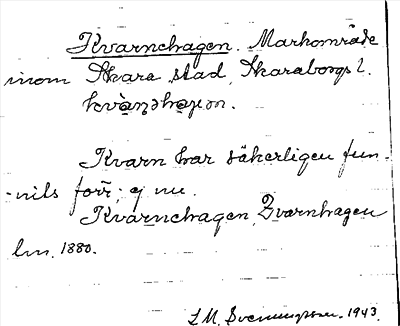 Kvarnehagen. Markområde
inom Skara stad, Skaraborgs l.
Kvarn har säkerligen fun-
-nits förr; ej nu.
Kvarnehagen, Qvarnhagen
lm. 1880.
L.M. Svenungsson. 1943.